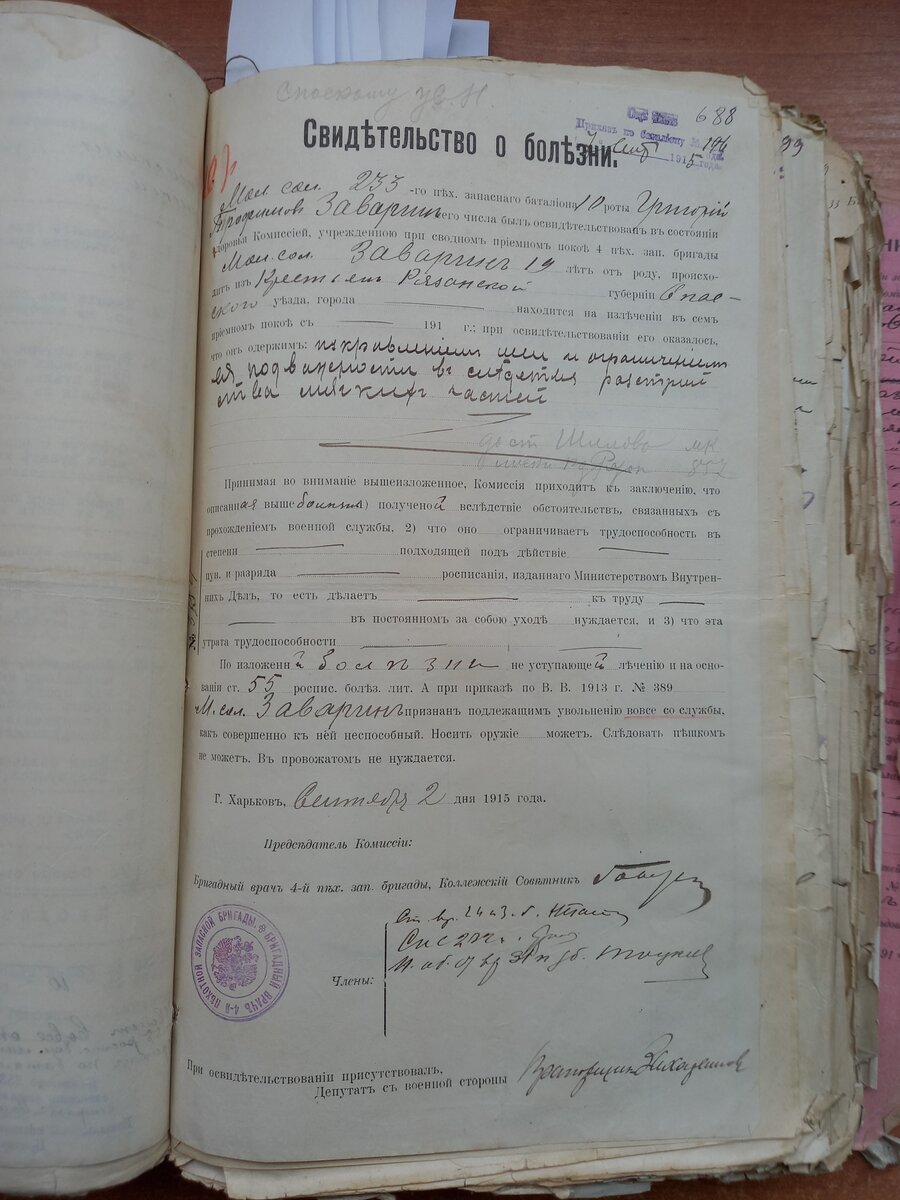 Спаскому у. В. Н.
688
Свидѣтельство о болѣзни.
1915 года.
Мол сол. 233-го пѣх. запаснаго баталіона 10 роты Григорій
Трофимов Заваринъ сего числа былъ освидѣтельствованъ въ состояніи
здоровья Комиссіей, учрежденною при сводномъ пріемномъ покоѣ 4 пѣх. зап. бригады
Мол. сол. Заваринъ 19 лѣтъ отъ роду, происхо-
дитъ изъ Крестьянъ Рязанской губерніи Спас-
скаго уѣзда, города находится на излѣченіи въ семъ
пріемномъ покоѣ съ 191 г.; при освидѣтельствованіи его оказалось,
что онъ одержимъ: искривленіемъ шеи и ограниченіем
ея подвижности въ слѣдствія
мягкихъ частей
дост Шилово мк
857
Принимая во вниманіе вышеизложенное, Комиссія приходитъ къ заключенію, что
описанная выше болѣзнь 1) полученой вслѣдствіе обстоятельствъ, связанныхъ съ
прохожденіемъ военной службы, 2) что оно ограничиваетъ трудоспособность въ
степени подходящей подъ дѣйствіе
пун. и разряда росписанія, изданнаго Министерствомъ Внутрен-
нихъ Дѣлъ, то есть дѣлаетъ къ труду
въ постоянномъ за собою уходѣ нуждается, и 3) что эта
утрата трудоспособности
По изложенной болѣзни не уступающей лѣченію и на осно-
ваніи ст. 55 роспис. болѣз. лит. А при приказѣ по В. В. 1913 г. № 389
М. сол. Заваринъ признанъ подлежащимъ увольненію вовсе со службы,
какъ совершенно къ ней неспособный. Носить оружіе можетъ. Слѣдовать пѣшкомъ
не можетъ. Въ провожатомъ не нуждается.
Г. Харьковъ, Сентября 2 дня 1915 года.
Предсѣдатель Комиссіи:
Бригадный врачъ 4-й пѣх. зап. бригады, Коллежскій Совѣтникъ
Члены:
БРИГАДНЫЙ ВРАЧЪ 4-Й ПѢХОТНОЙ ЗАПАСНОЙ БРИГАДЫ
При освидѣтельствованіи присутствовалъ.
Депутатъ съ военной стороны Прапорщикъ